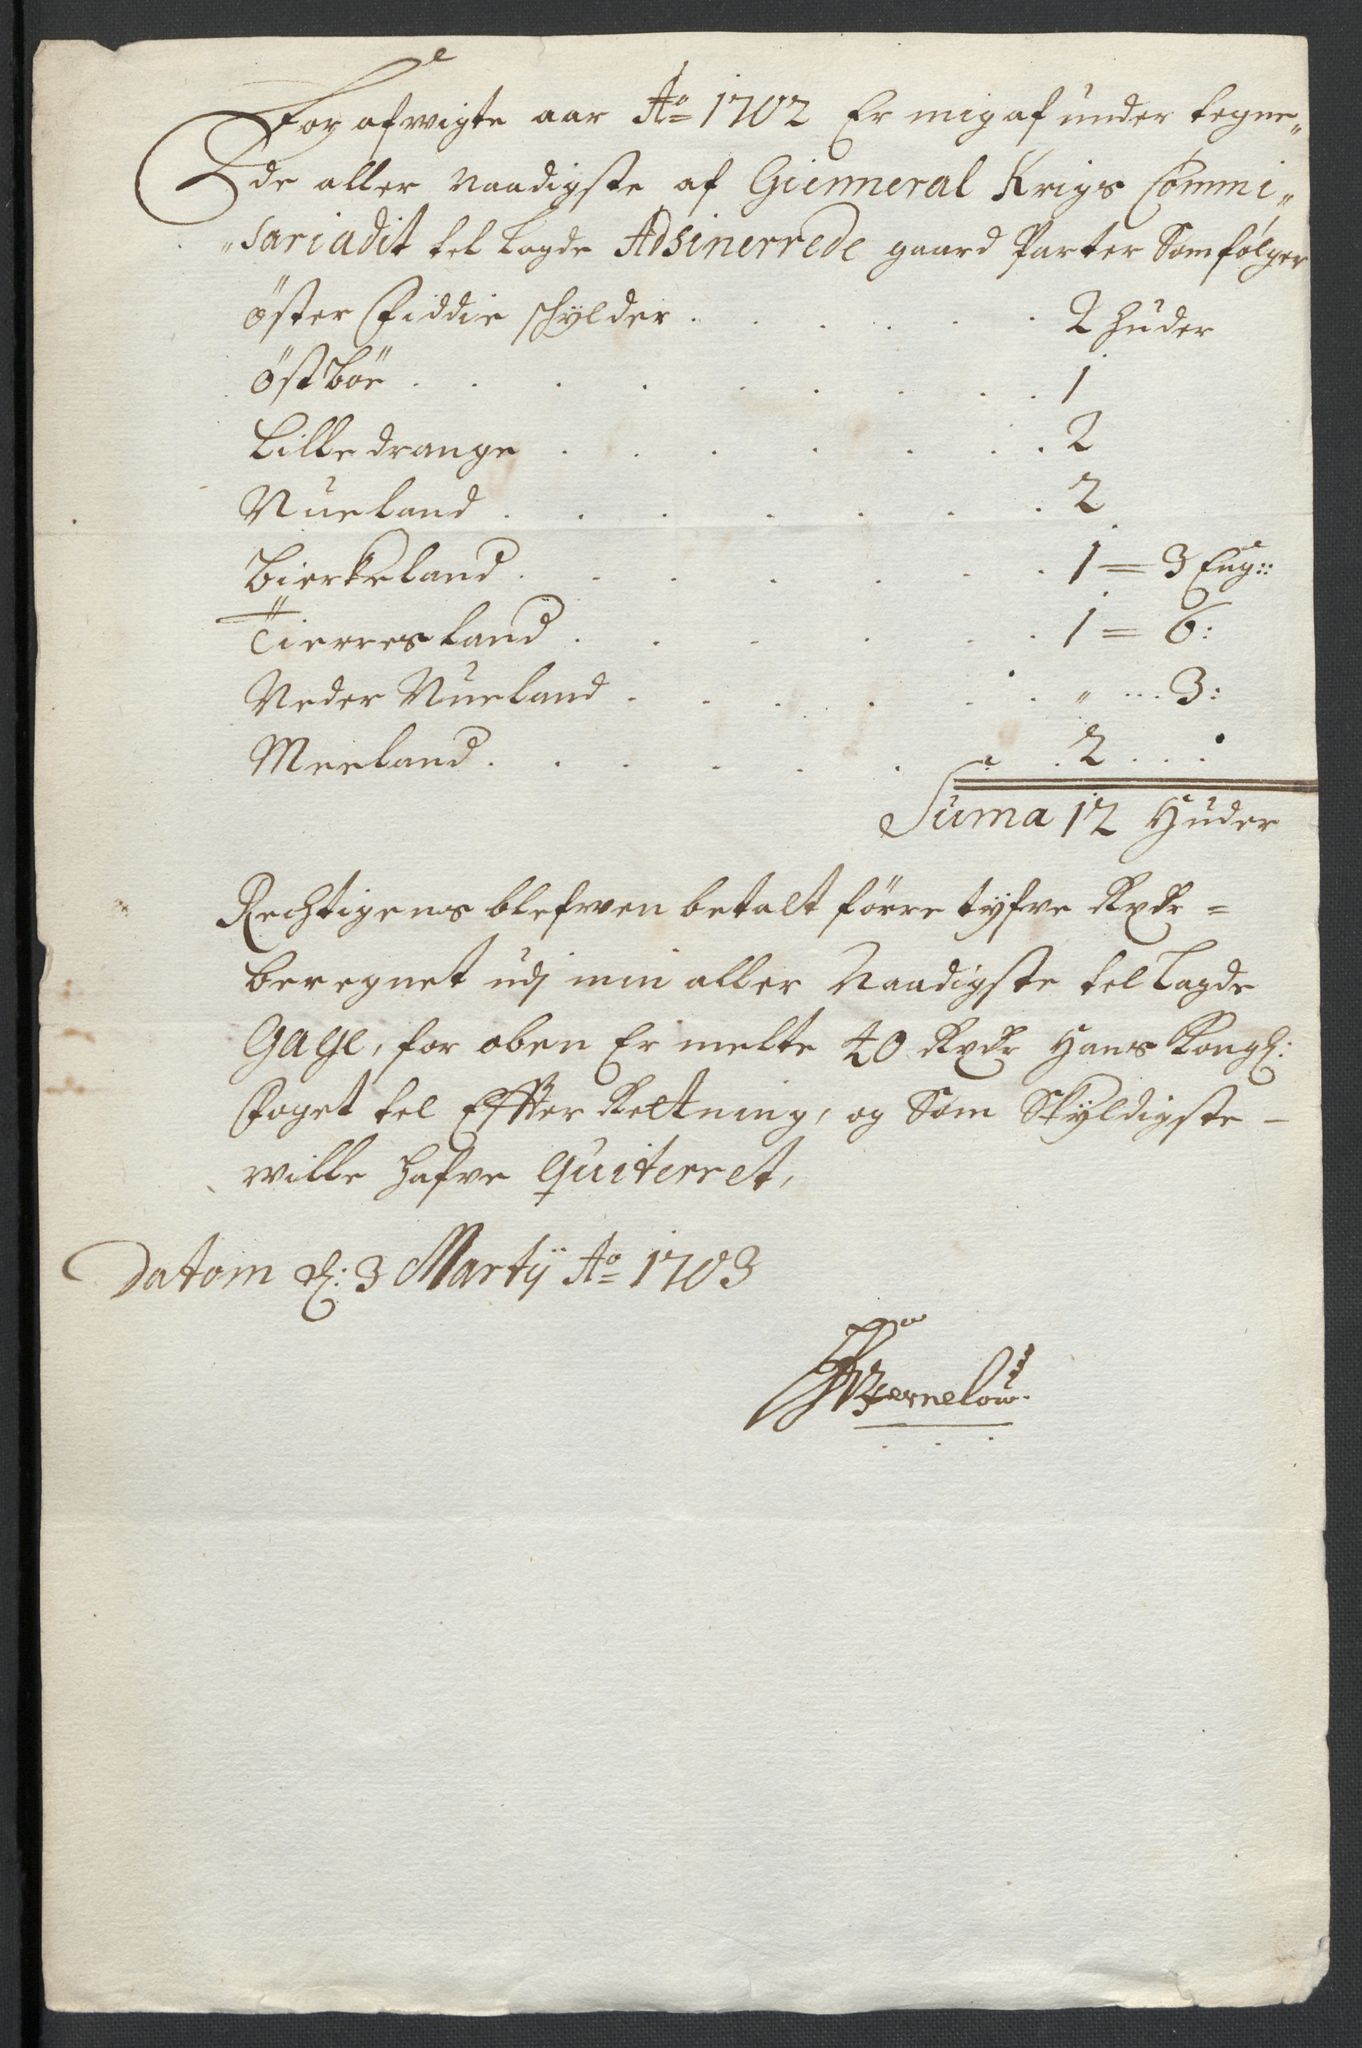 For afwigte aar Ao 1702 Er mig af under tegne„
de aller Naadigste af Gienneral Krigs Commi„
„sariadit tel lagde Adsinerrede gaard Parter Som følger
Öster Fiddie schylder . . . . . 2 huder
Östböe . . . . . . . 1
Lille drange . . . . . . 2
Nueland . . . . . . . 2
Bierkeland . . . . . . 1 = 3 Eng::
Tierresland . . . . . . 1 = 6:
Neder Nueland . . . . . „ ... 3:
Meeland . . . . . . 2 . . .
Suma 12 Huder
Rechtigens blefven betalt förre tyfve Rxdr =
beregnet udj min aller Naadigste tel lagde
Gage, for oben Er melte 40 Rxdr Hans Kongl:
Foget tel Effter Rettning, og Som Skyldigste –
wille hafve quiterret,
Datom d: 3 Martij Ao 1703